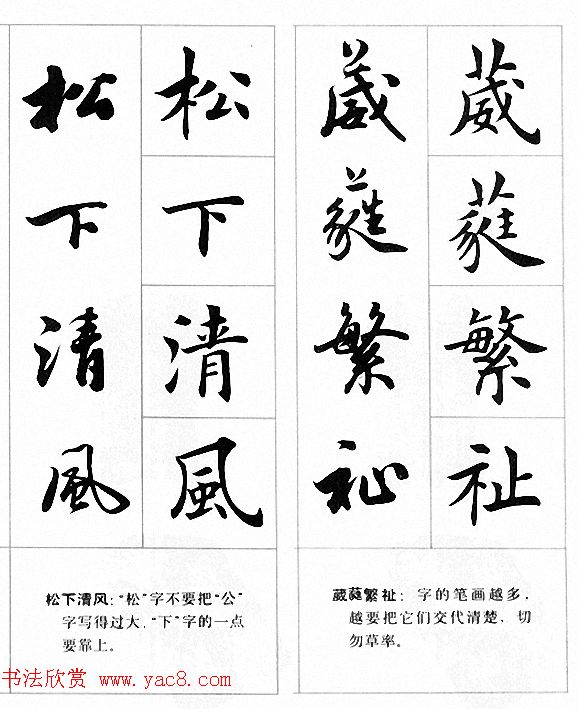 松下清風
松下清風
松下清风：“松”字不要把“公”
字写得过大，“下”字的一点
要靠上。
葳蕤繁祉
葳蕤繁祉
葳蕤繁祉：字的笔画越多，
越要把它们交代清楚，切
勿草率。
书法欣赏 www.yac8.com